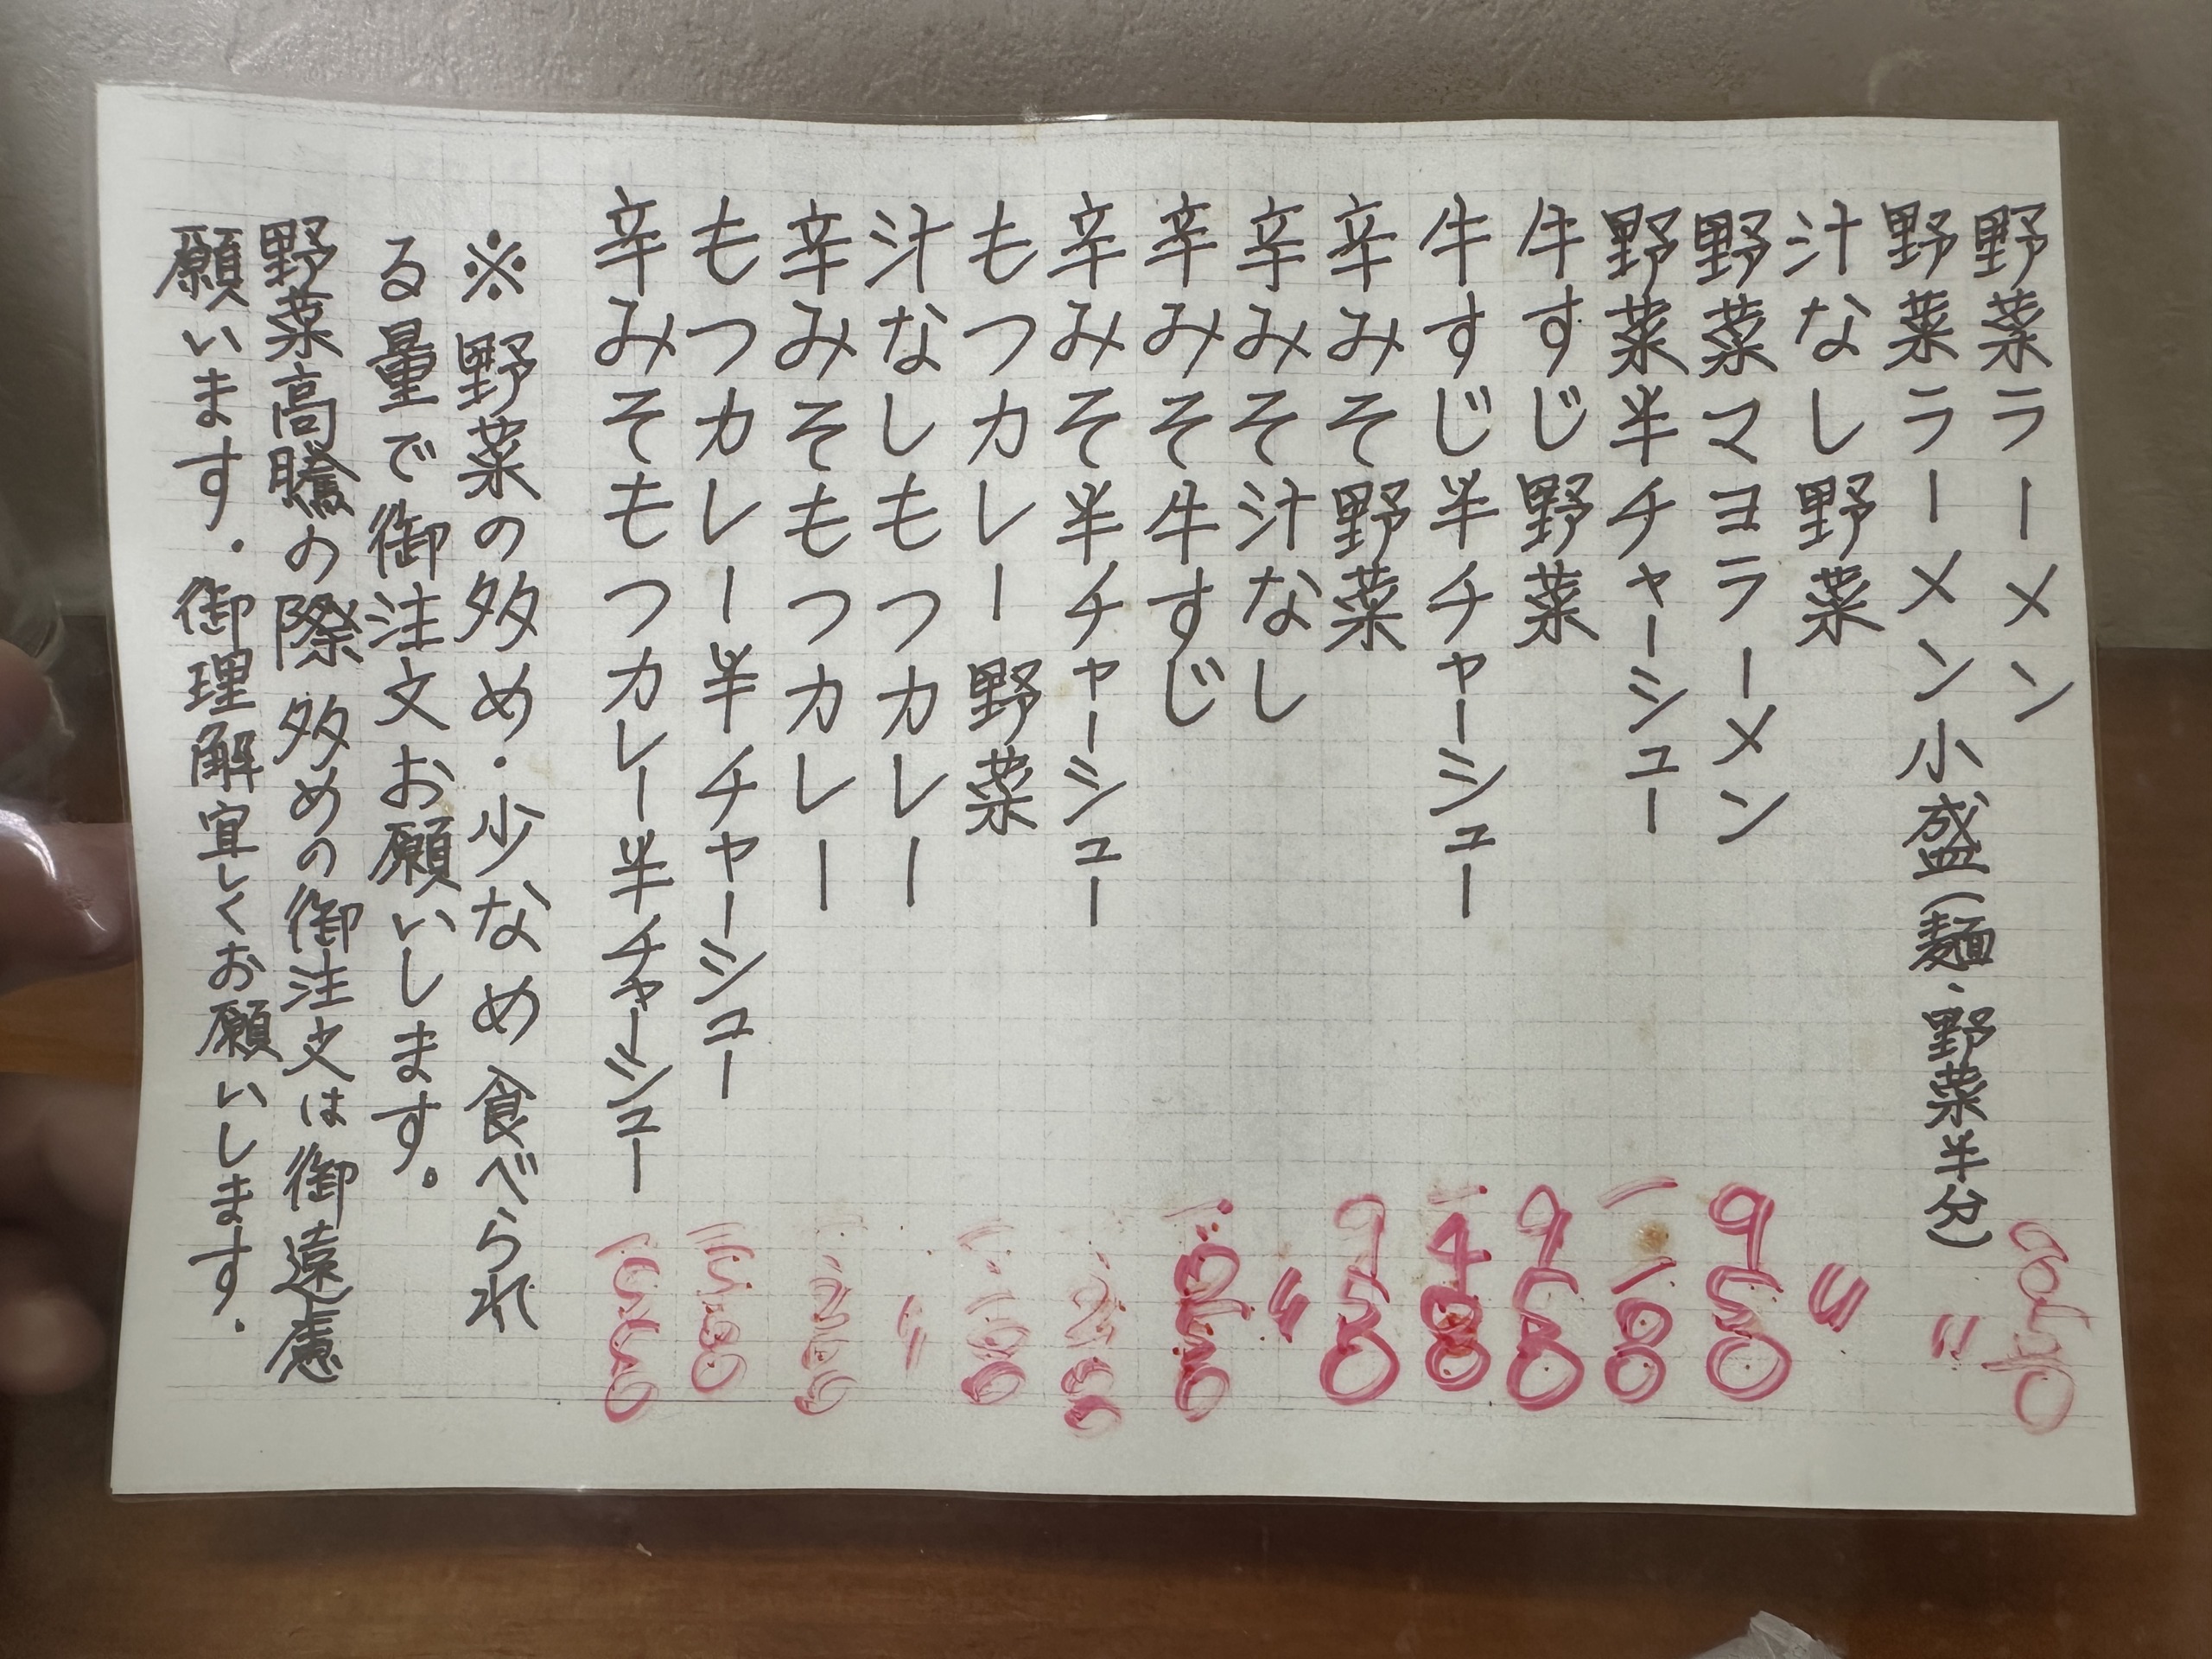 野菜ラーメン 850
野菜ラーメン小盛(麺・野菜半分) 〃
汁なし野菜 〃
野菜マヨラーメン 950
野菜半チャーシュー 1100
牛すじ野菜 950
牛すじ半チャーシュー
辛みそ野菜 950
辛みそ汁なし 〃
辛みそ牛すじ 1050
辛みそ半チャーシュー 1200
もつカレー野菜 1100
汁なしもつカレー 〃
辛みそもつカレー 1200
もつカレー半チャーシュー
辛みそもつカレー半チャーシュー
※野菜の多め・少なめ食べられ
る量で御注文お願いします。
野菜高騰の際多めの御注文は御遠慮
願います。御理解宜しくお願いします。